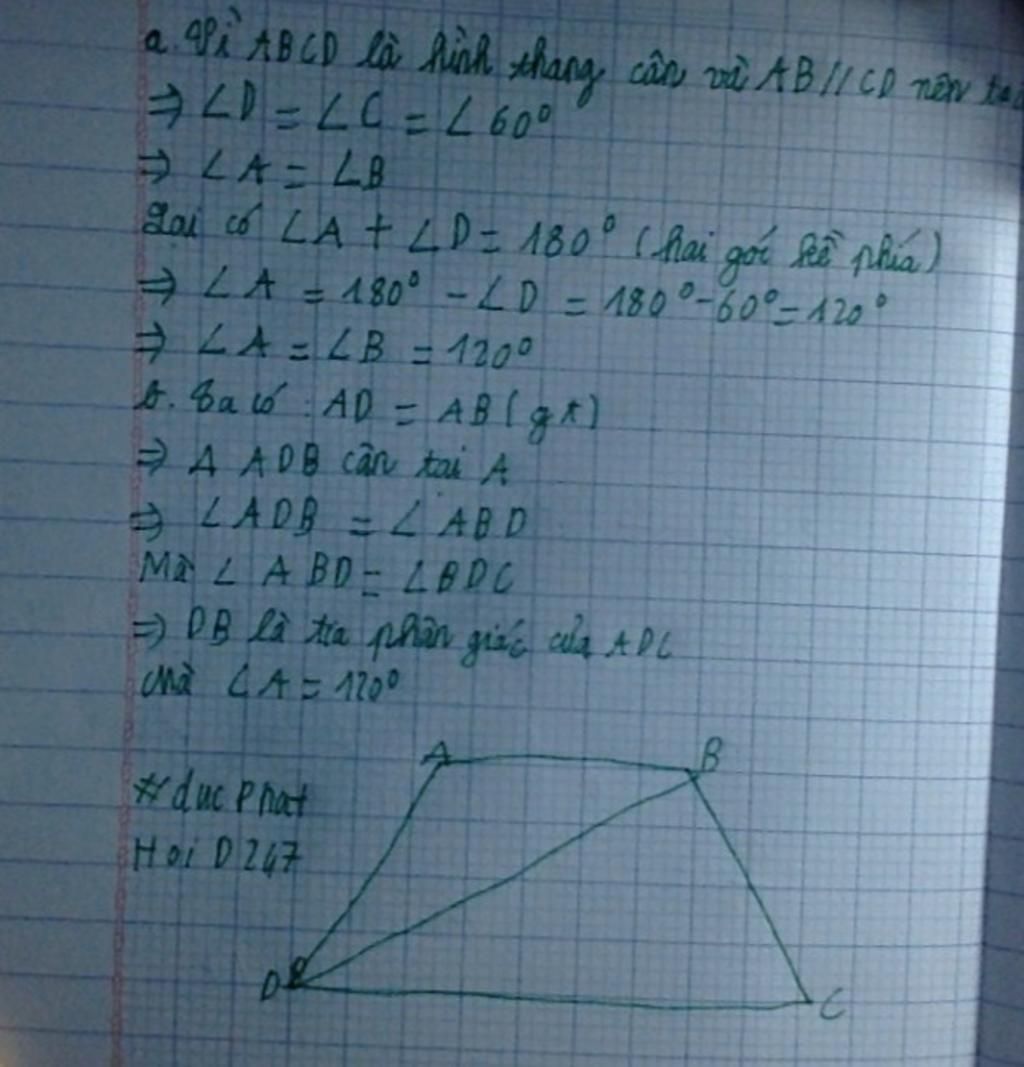 a. Vì ABCD là hình thang cân và AB//CD nên
⇒ ∠D = ∠C = ∠60°
⇒ ∠A = ∠B
Lại có ∠A + ∠D = 180° (hai góc kề phía)
⇒ ∠A = 180° - ∠D = 180° - 60° = 120°
⇒ ∠A = ∠B = 120°
b. Ta có : AD = AB (gt)
⇒ Δ ADB cân tại A
⇒ ∠ADB = ∠ABD
Mà ∠ABD = ∠BDC
⇒ DB là tia phân giác của ADC
Mà ∠A = 120°
A B
# duc Phat
Hoi D247
D C